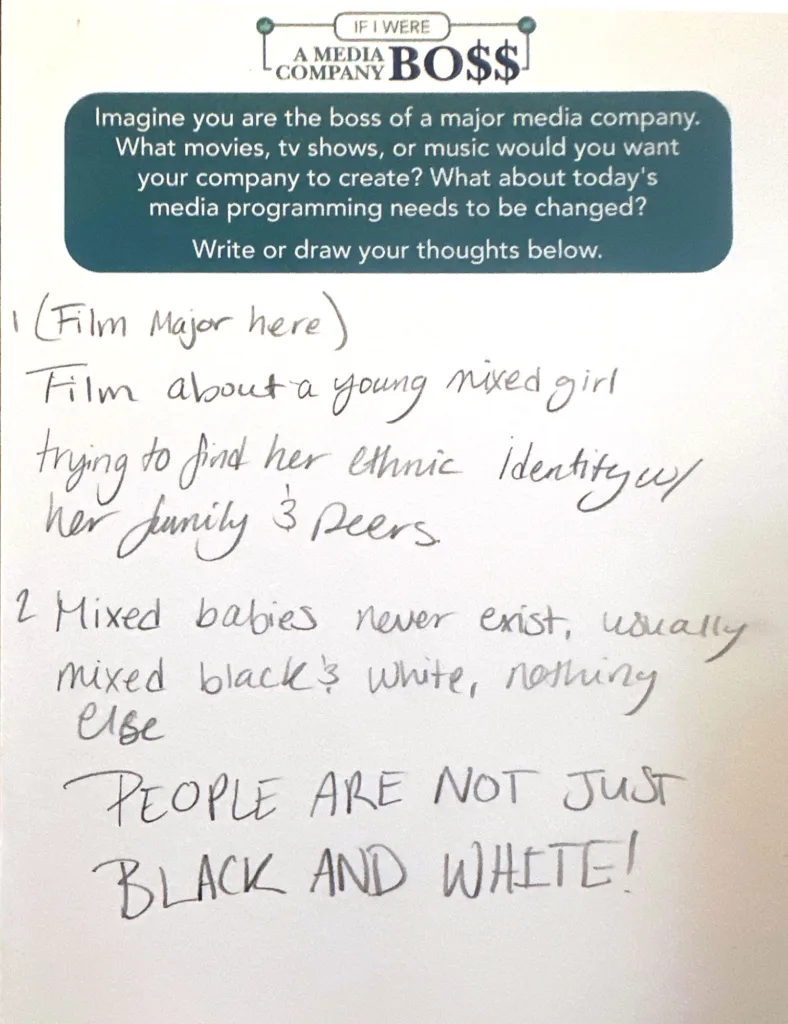 IF I WERE
A MEDIA
COMPANY BO$$
Imagine you are the boss of a major media company.
What movies, tv shows, or music would you want
your company to create? What about today's
media programming needs to be changed?
Write or draw your thoughts below.
1 (Film Major here)
Film about a young mixed girl
trying to find her ethnic identity w/
her family & peers.
2 Mixed babies never exist, usually
mixed black & white, nothing
else
PEOPLE ARE NOT JUST
BLACK AND WHITE!